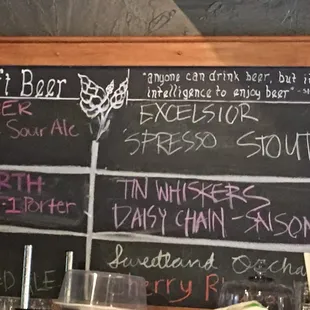 ft Beer
"anyone can drink beer, but i
intelligence to enjoy beer"
ER
Sour Ale
EXCELSIOR
'SPRESSO STOUT
RTH
1 Porter
TIN WHISKERS
DAISY CHAIN - SAISON
ALE
Sweetland Orchar
Cherry R